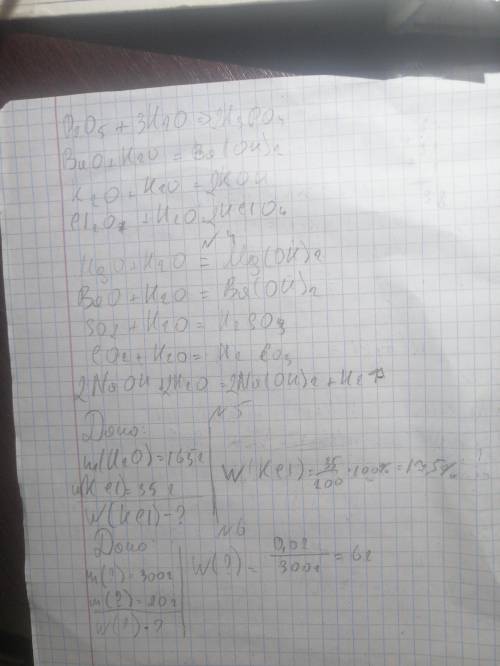 P2O5 + 3H2O = 2H3PO4
BaO + H2O = Ba(OH)2
K2O + H2O = 2KOH
Cl2O7 + H2O = 2HClO4
№4
MgO + H2O = Mg(OH)2
BaO + H2O = Ba(OH)2
SO2 + H2O = H2SO3
CO2 + H2O = H2CO3
2NaOH + 2H2O = 2Na(OH)2 + H2↑
№5
Дано:
m(H2O) = 165г
m(KCl) = 35 г
W(KCl) - ?
W(KCl) = 35/200 · 100% = 17,5%
№6
Дано:
m(?) = 300г
m(?) = 20г
W(?) - ?
W(?) = /300г = 6г